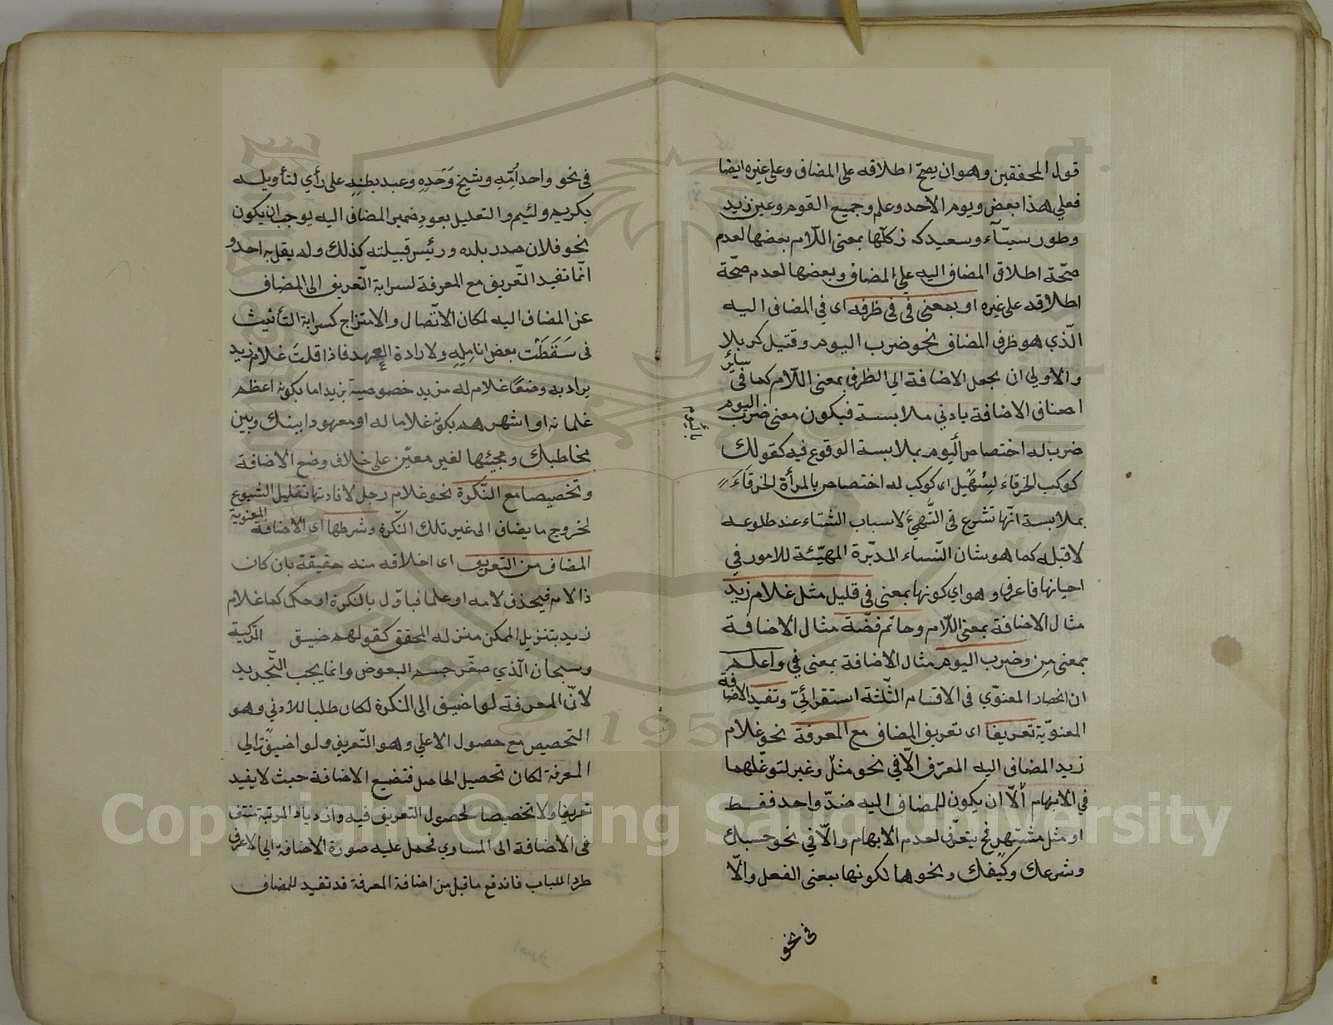 قول المحققين وهو ان يصح اطلاقه على المضاف وعلى غيره ايضا
فعلى هذا بعض ويوم الاحد وعلم وجميع القوم وعين زيد
وطور سيناء وسعيد كرز كلها بمعنى اللام بعضها لعدم
صحة اطلاق المضاف اليه على المضاف وبعضها لعدم صحة
اطلاقه على غيره او بمعنى في في ظرفه اى في المضاف اليه
الذي هو ظرف المضاف نحو ضرب اليوم وقتيل كربلا
والاولى ان يجعل الاضافة الى الظرف بمعنى اللام كما في سائر
اصناف الاضافة بادنى ملابسة فيكون معنى ضرب اليوم
ضرب له اختصاص باليوم بملابسة الوقوع فيه كقولك
كوكب الخرقاء لسهيل اى كوكب له اختصاص بالمرأة الخرقاء
بملابسة انها تشرع في التهيئ لاسباب الشتاء عند طلوعه
لا قبله كما هو شان النساء المدبرة المهيئة للامور في
احيانها فاعرف وهو اى كونها بمعنى في قليل مثل غلام زيد
مثال الاضافة بمعنى اللام وخاتم فضة مثال الاضافة
بمعنى من وضرب اليوم مثال الاضافة بمعنى في واعلم
ان انحصار المعنوي في الاقسام الثلثة استقرائي وتفيد الاضافة
المعنوية تعريفا اى تعريف المضاف مع المعرفة نحو غلام
زيد المضاف اليه المعرف الا في نحو مثل وغير لتوغلهما
في الابهام الا ان يكون للمضاف اليه ضد واحد فقط
او مثل مشتهر فح يتعرف لعدم الابهام والا في نحو حسبك
وشرعك وكفيك ونحوها لكونها بمعنى الفعل والا
في نحو
في نحو واحد امه وشيخ وحده وعبد بطنه على رأي لتأويله
بكريم ولئيم والتعليل بعود ضمير المضاف اليه يوجب ان يكون
نحو فلان صدر بلده ورئيس قبيلته كذلك ولم يقل به احد و
انما تفيد التعريف مع المعرفة لسراية التعريف الى المضاف
عن المضاف اليه لمكان الاتصال والامتزاج كسراية التأنيث
في سقطت بعض انامله ولارادة العهد فاذا قلت غلام زيد
يراد به وضعا غلام له مزيد خصوصية بزيد اما بكونه اعظم
غلمانه او اشهرهم بكونه غلاما له او معهودا بينك وبين
مخاطبك ومجيئها لغير معين على خلاف وضع الاضافة
وتخصيصا مع النكرة نحو غلام رجل لافادتها تقليل الشيوع
لخروج ما يضاف الى غير تلك النكرة وشرطها اى الاضافة المعنوية
المضاف من التعريف اى اخلاقه منه حقيقة بان كان
ذا لام فيحذف لامه او علما فياول بالنكرة او حكما كما غلام
زيد بتنزيل الممكن منزلة المحقق كقولهم ضيق الركية
وسبحان الذي صغر جسم البعوض وانما يجب التجريد
لان المعرفة لو اضيف الى النكرة لكان طلبا للادنى وهو
التخصيص مع حصول الاعلى وهو التعريف ولو اضيف الى
المعرفة لكان تحصيل الحاصل فتضيع الاضافة حيث لا يفيد
تعريفا ولا تخصيصا لحصول التعريف فيه وازدياد المرتبة منتف
في الاضافة الى المساوي فحمل عليه صورة الاضافة الى الاعرف
طردا للباب فاندفع ما قيل من اضافة المعرفة قد تفيد للمضاف
Copyright © King Saud University
195